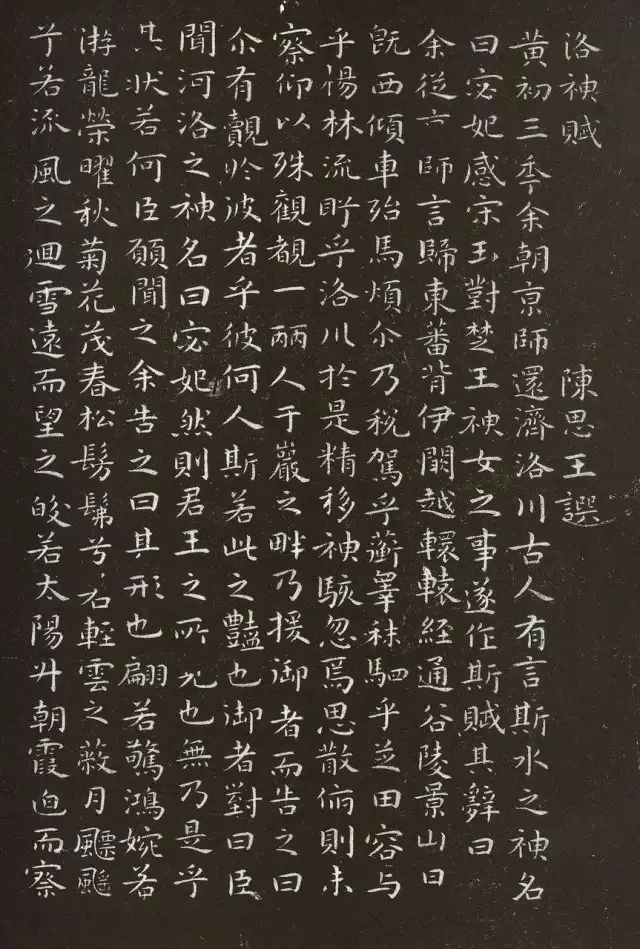 洛神賦 陳思王譔
黄初三季余朝京師還濟洛川古人有言斯水之神名
曰宓妃感宋玉對楚王神女之事遂作斯賦其辭曰
余從京師言歸東蕃背伊闕越轘轅經通谷陵景山日
既西傾車殆馬煩尒乃税駕乎蘅睪秣駟乎芝田容与
乎楊林流眄乎洛川於是精移神駭忽焉思散俯則未
察仰以殊觀覩一麗人于巖之畔乃援御者而告之曰
尒有覿於彼者乎彼何人斯若此之豔也御者對曰臣
聞河洛之神名曰宓妃然則君王之所見也無乃是乎
其状若何臣願聞之余告之曰其形也翩若驚鴻婉若
游龍榮曜秋菊花茂春松髣髴兮若輕雲之蔽月飄颻
兮若流風之迴雪遠而望之皎若太陽升朝霞迫而察